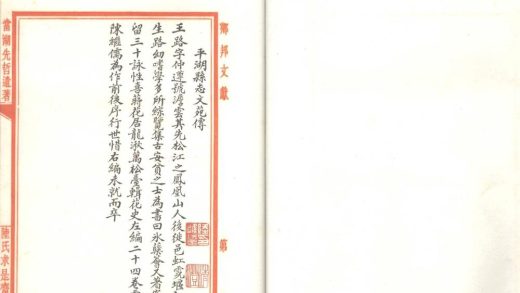 鄉邦文獻
第
平湖縣志文苑傳
王路字仲遵號澹雲其先松江之鳳凰山人後徙邑虹霓堰
生路幼嗜學多所綜覽集古安貧之士為書曰氷蘖會又著
留三十詠性喜蒔花居龍湫萬松臺輯花史左編二十四卷
陳繼儒為作前後序行世惜右編未就而卒
當湖先哲遺著
陳氏求是齋